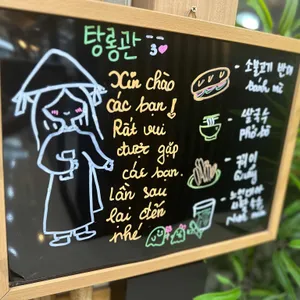 탕롱관
Xin chào
các bạn!
Rất vui
được gặp
các bạn.
Lần sau
lại đến
nhé
- 소불고기 반미
bánh mì
- 쌀국수
Phở bò
Quẩy